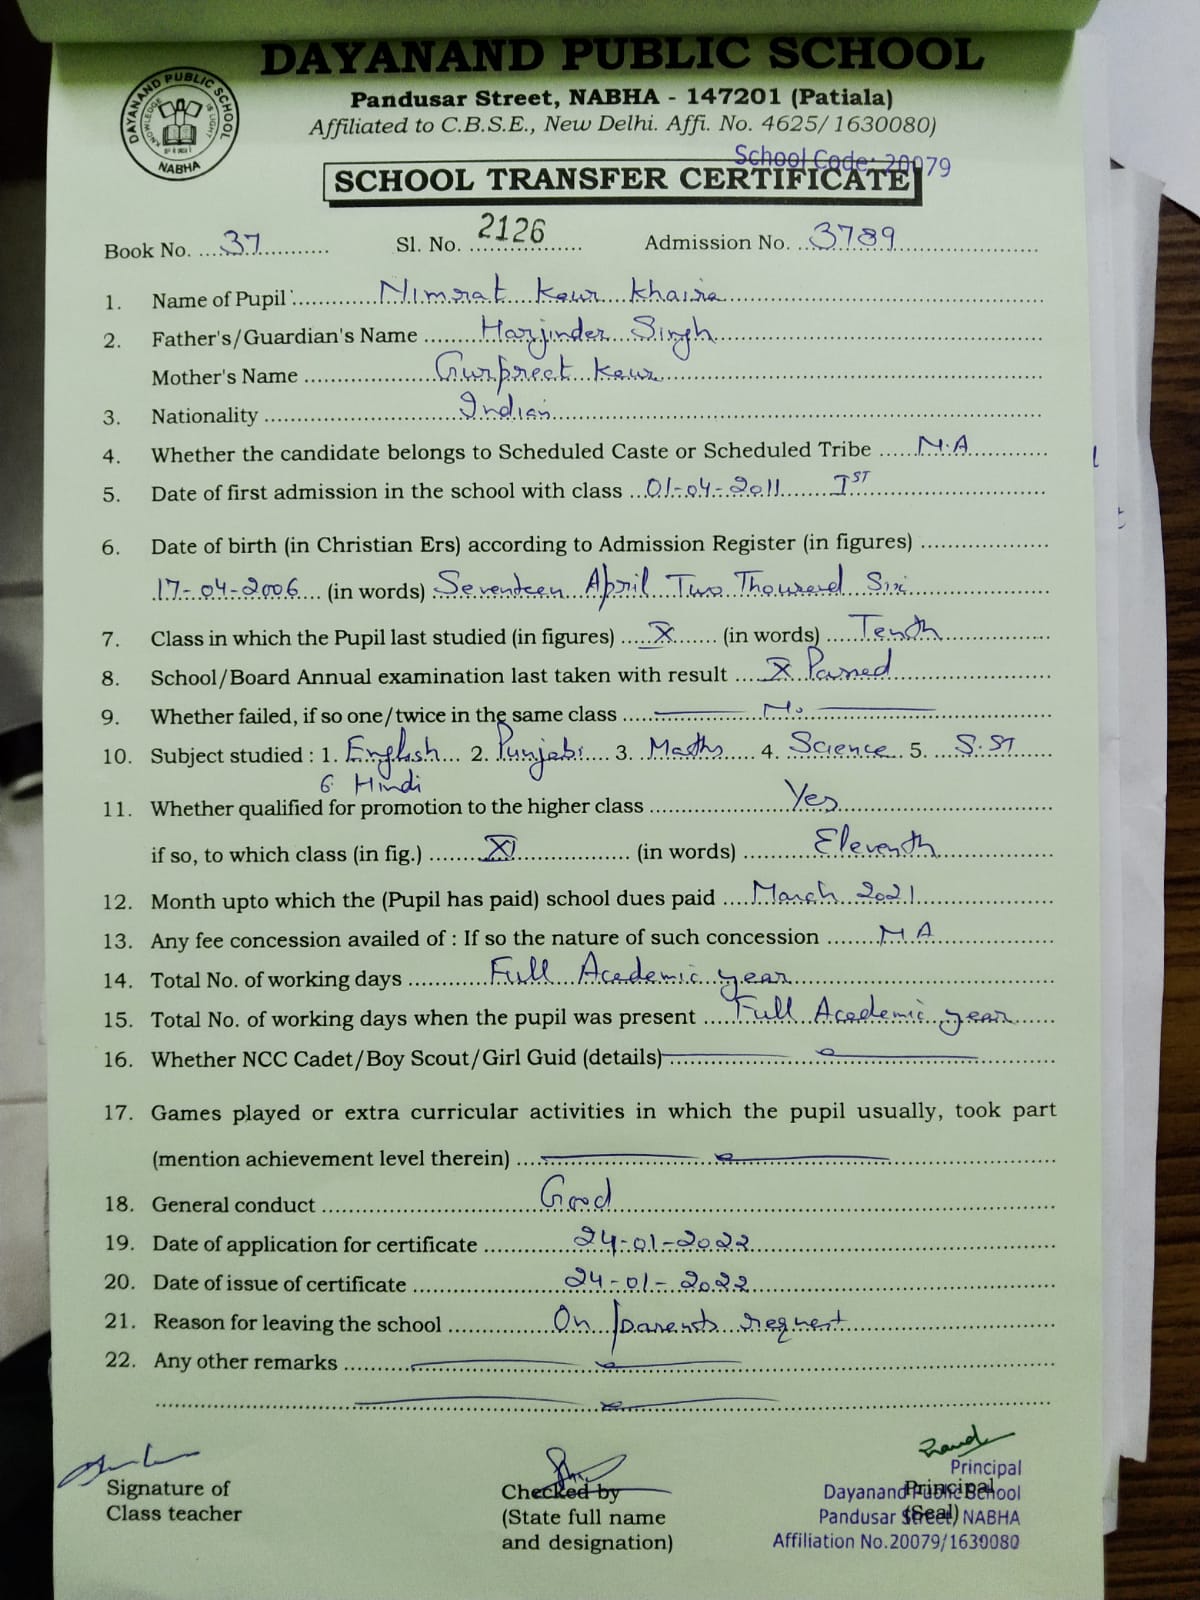 DAYANAND PUBLIC SCHOOL
Pandusar Street, NABHA - 147201 (Patiala)
Affiliated to C.B.S.E., New Delhi. Affi. No. 4625/1630080)
DAYANAND PUBLIC SCHOOL
KNOWLEDGE IS LIGHT
NABHA
School Code: 20079
SCHOOL TRANSFER CERTIFICATE
Book No. 37 Sl. No. 2126 Admission No. 3789
1. Name of Pupil Nimrat Kaur Khaira
2. Father's/Guardian's Name Harjinder Singh
Mother's Name Gurpreet Kaur
3. Nationality Indian
4. Whether the candidate belongs to Scheduled Caste or Scheduled Tribe N.A
5. Date of first admission in the school with class 01-04-2011 IST
6. Date of birth (in Christian Ers) according to Admission Register (in figures)
17-04-2006 (in words) Seventeen April Two Thousand Six
7. Class in which the Pupil last studied (in figures) X (in words) Tenth
8. School/Board Annual examination last taken with result X Passed
9. Whether failed, if so one/twice in the same class No
10. Subject studied : 1. English 2. Punjabi 3. Maths 4. Science 5. S.ST
6 Hindi
11. Whether qualified for promotion to the higher class Yes
if so, to which class (in fig.) XI (in words) Eleventh
12. Month upto which the (Pupil has paid) school dues paid March 2021
13. Any fee concession availed of : If so the nature of such concession N A
14. Total No. of working days Full Academic year
15. Total No. of working days when the pupil was present Full Academic year
16. Whether NCC Cadet/Boy Scout/Girl Guid (details)
17. Games played or extra curricular activities in which the pupil usually, took part
(mention achievement level therein)
18. General conduct Good
19. Date of application for certificate 24-01-2022
20. Date of issue of certificate 24-01-2022
21. Reason for leaving the school On parents request
22. Any other remarks
Signature of
Class teacher
Checked by
(State full name
and designation)
Principal
(Seal)
Principal
Dayanand Public School
Pandusar Street, NABHA
Affiliation No.20079/1630080